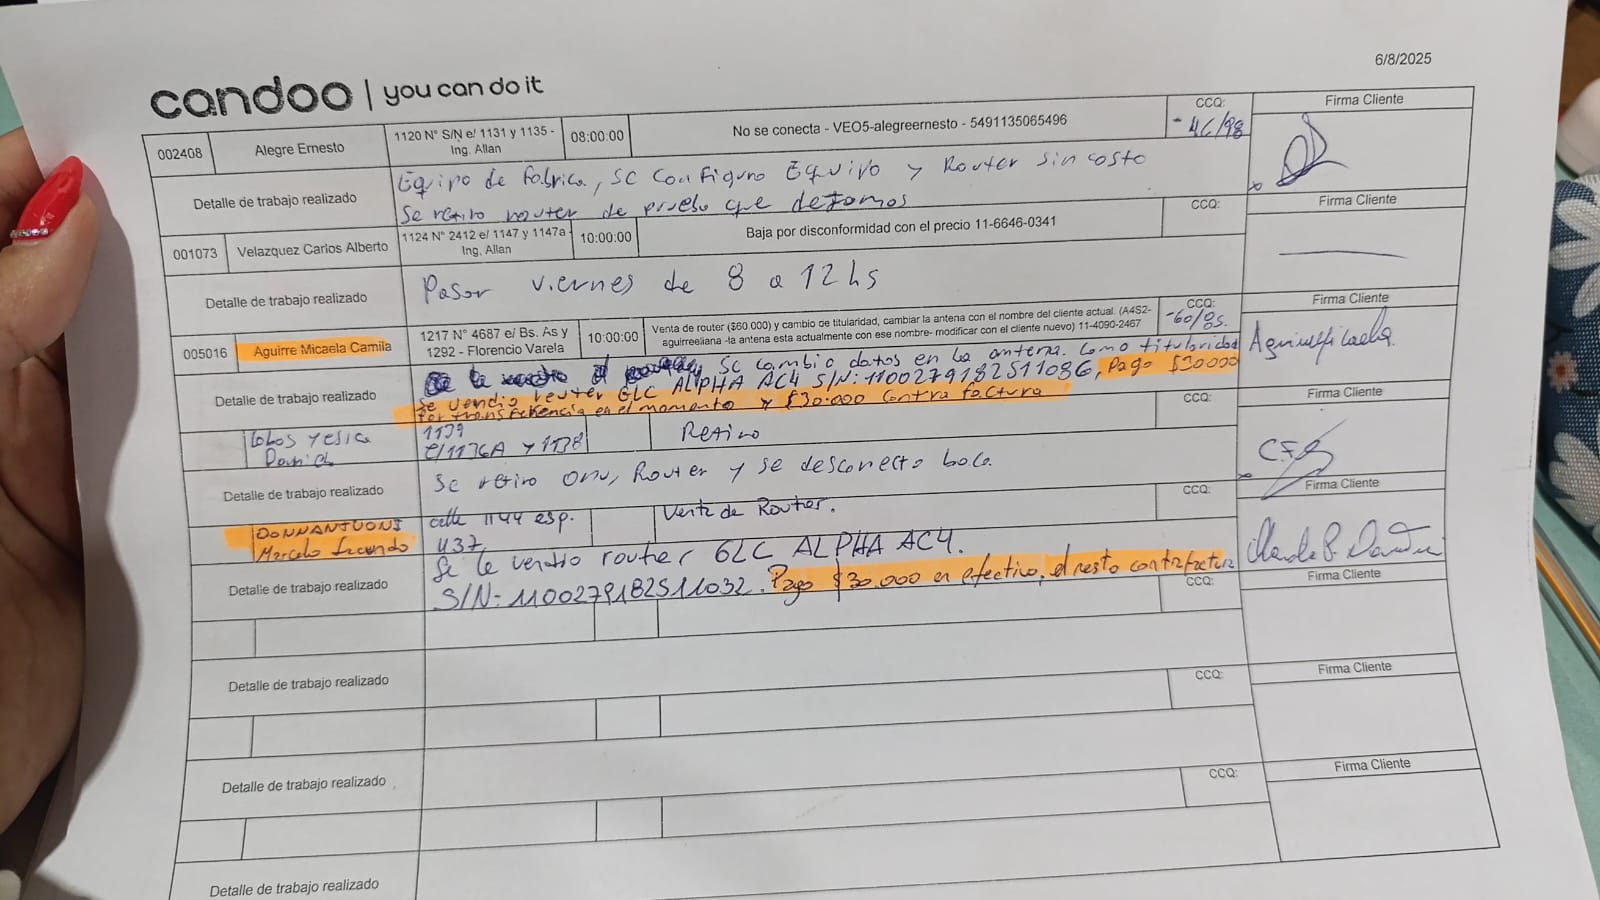 6/8/2025
candoo | you can do it
002408 Alegre Ernesto 1120 N° S/N e/ 1131 y 1135 - Ing. Allan 08:00:00 No se conecta - VEO5-alegreernesto - 5491135065496 CCQ: -46/98 Firma Cliente
Detalle de trabajo realizado
Equipo de fabrica, se configuro Equipo y Router sin costo
Se retiro router de prueba que dejamos
001073 Velazquez Carlos Alberto 1124 N° 2412 e/ 1147 y 1147a Ing. Allan 10:00:00 Baja por disconformidad con el precio 11-6646-0341 CCQ: Firma Cliente
Detalle de trabajo realizado
Pasar viernes de 8 a 12 hs
005016 Aguirre Micaela Camila 1217 N° 4687 e/ Bs. As y 1292 - Florencio Varela 10:00:00 Venta de router ($60 000) y cambio de titularidad, cambiar la antena con el nombre del cliente actual. (A4S2-aguirreeliana -la antena esta actualmente con ese nombre- modificar con el cliente nuevo) 11-4090-2467 CCQ: -60/85. Firma Cliente
Detalle de trabajo realizado
Se cambio datos en la antena. Como titularidad
Se vendio router GLC ALPHA AC4 S/N: 1100279182511086, Pago $30000
Por transferencia en el momento y $30.000 contra factura
Lobos Yesica 1139 e/1136A y 1138 Retiro CCQ: Firma Cliente
Detalle de trabajo realizado
Se retiro onu, Router y se desconecto boca.
DONNANTUONI Marcelo Facundo calle 1144 esp. 437 Venta de Router. CCQ: Firma Cliente
Detalle de trabajo realizado
Se le vendio router GLC ALPHA AC4.
S/N: 1100279182511032. Pago $30.000 en efectivo, el resto contrafactura
CCQ: Firma Cliente
Detalle de trabajo realizado
CCQ: Firma Cliente
Detalle de trabajo realizado
CCQ: Firma Cliente
Detalle de trabajo realizado